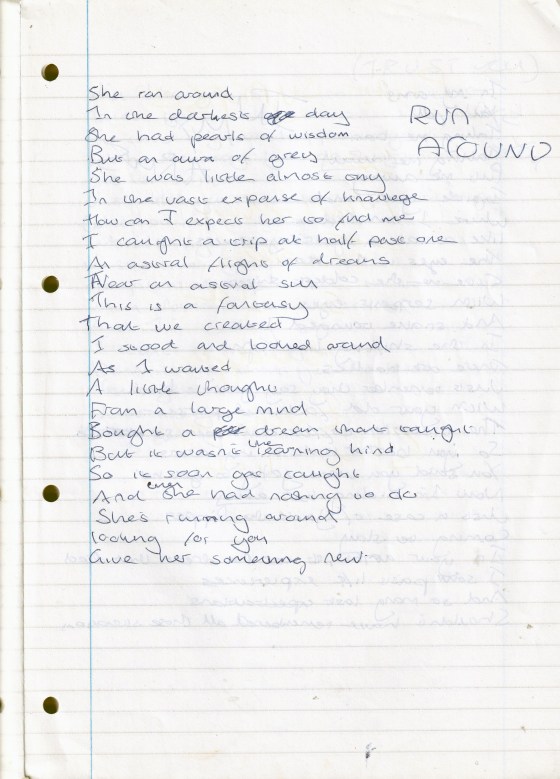 RUN
AROUND
She ran around
In the darkest day
She had pearls of wisdom
But an aura of grey
She was little almost any
In the vast expanse of knowlege
How can I expect her to find me
I caught a trip at half past one
An astral flight of dreams
Near an astral sun
This is a fantasy
That we created
I stood and looked around
As I waited
A little thought
From a large mind
Bought a dream that taught
But it wasn't the learning kind
So it soon got caught
And then she had nothing to do
She's running around
looking for you
Give her something new.